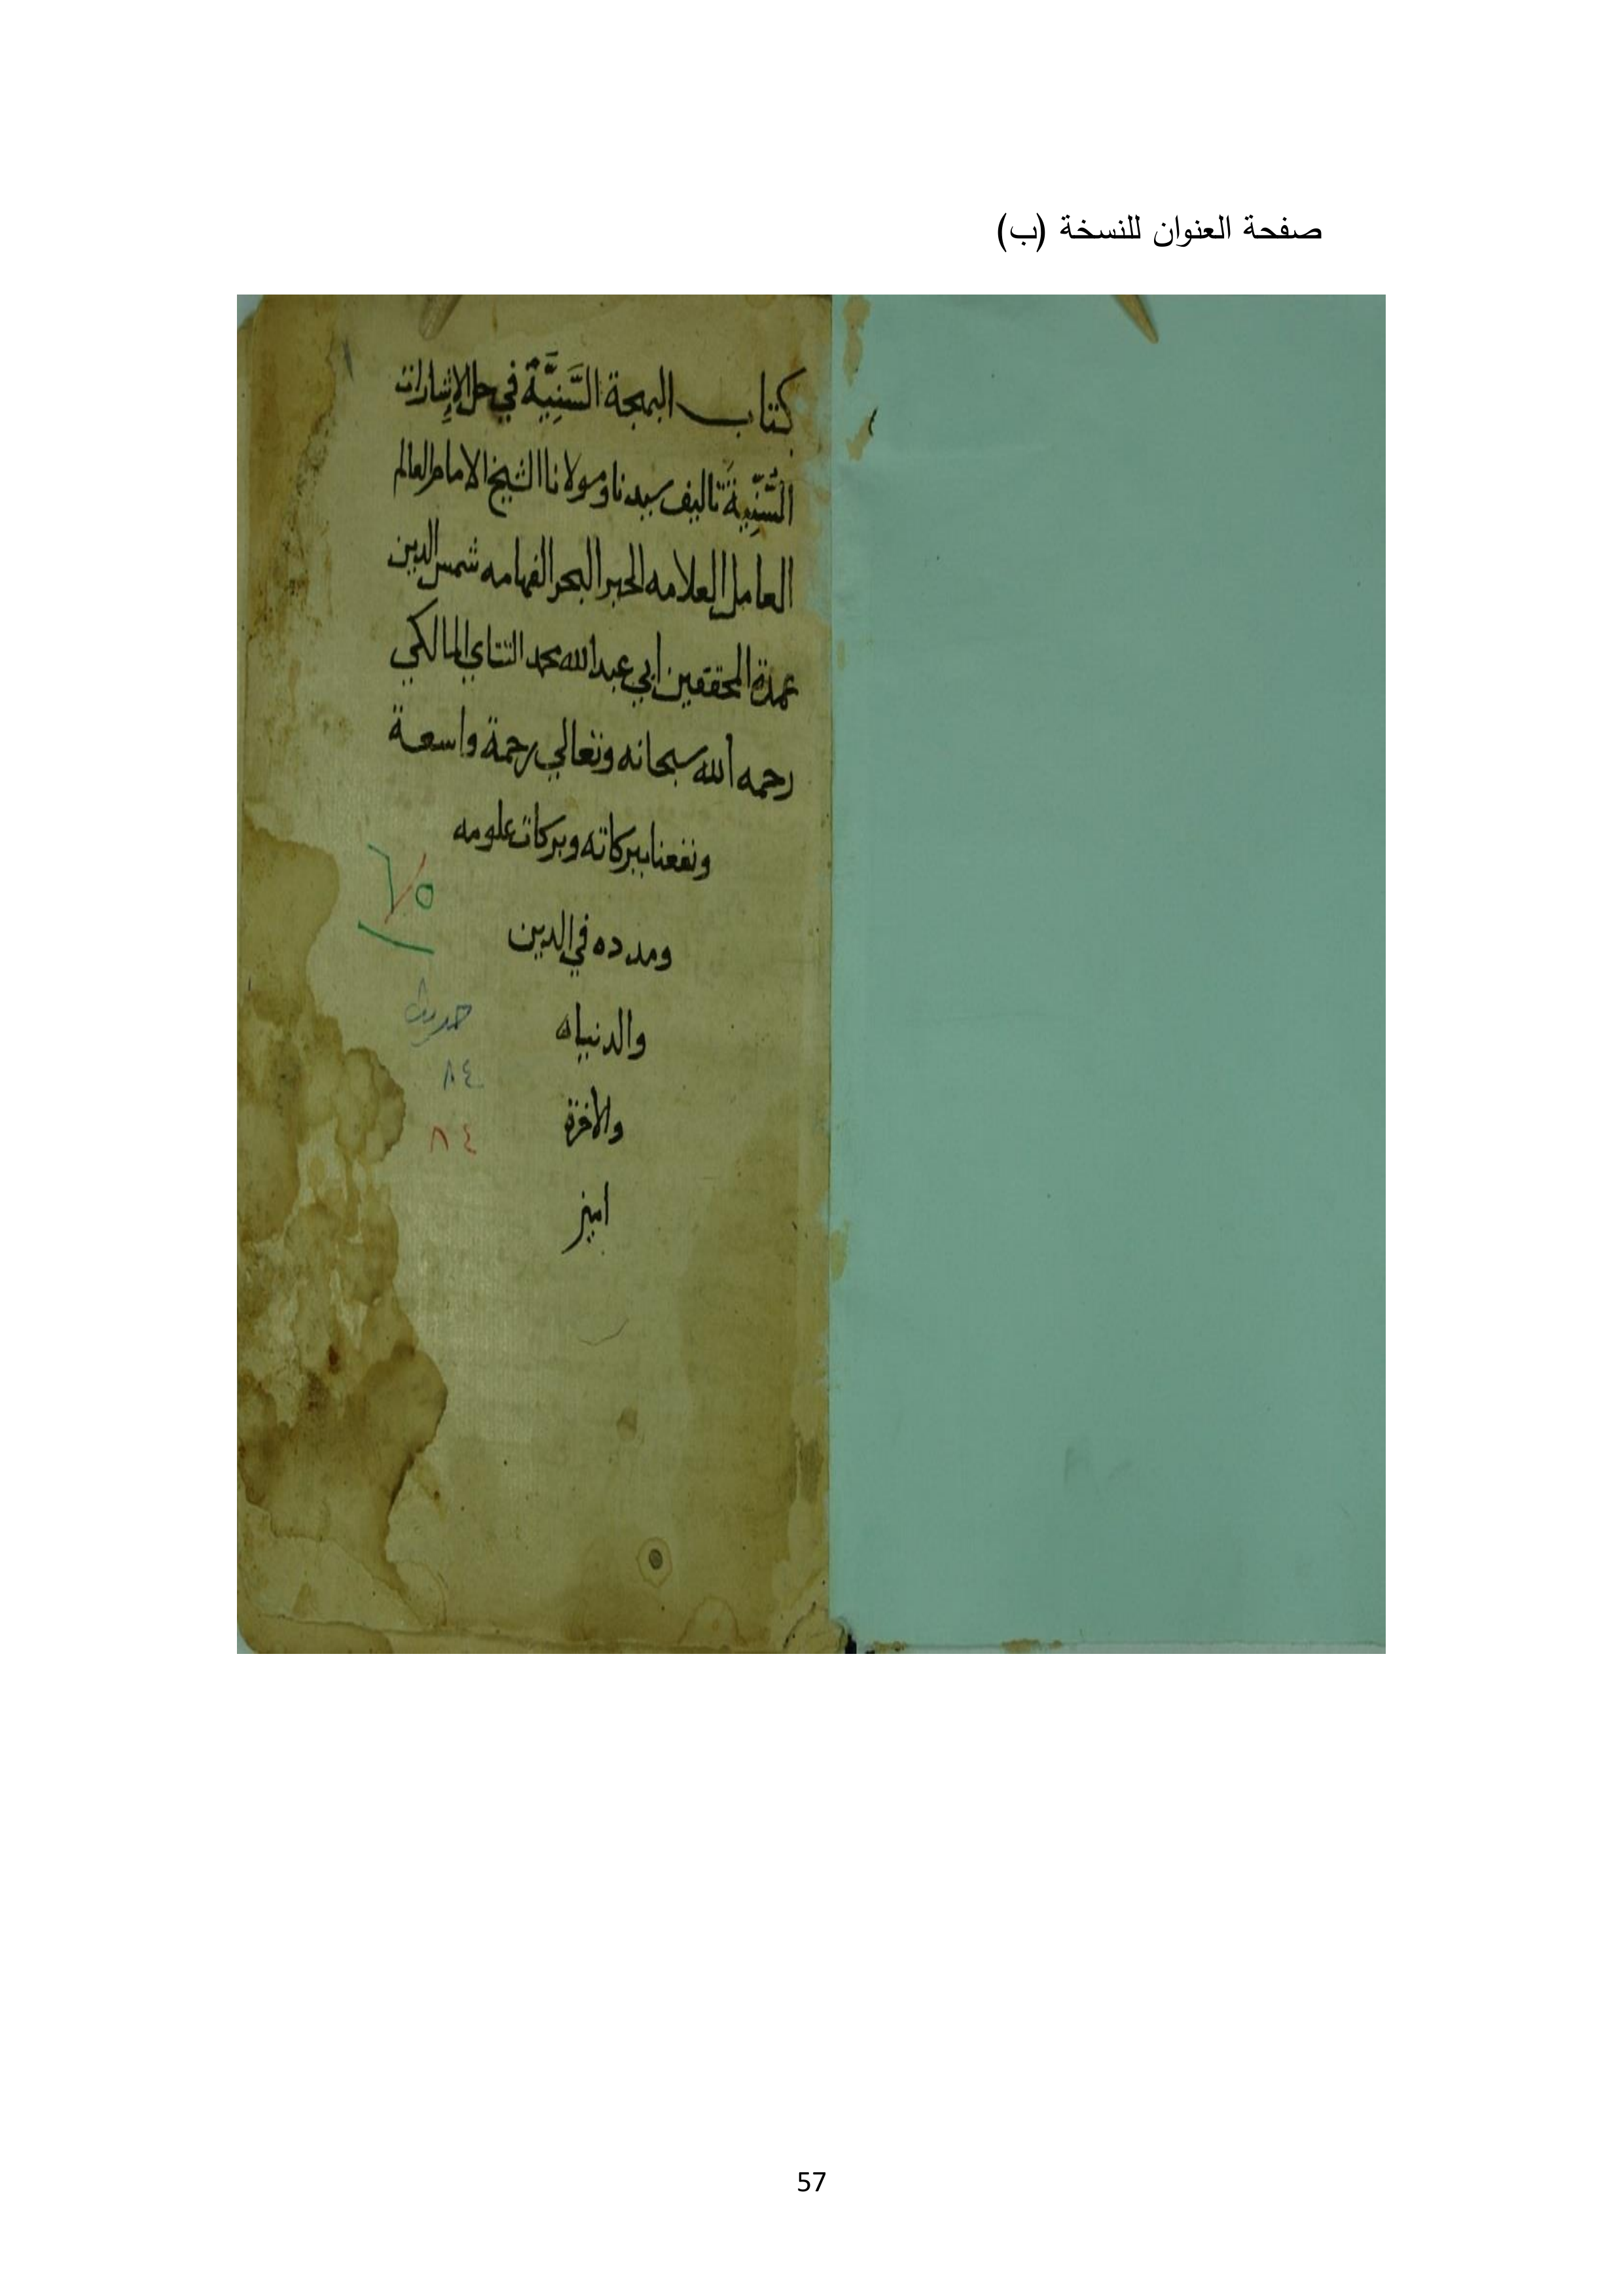 صفحة العنوان للنسخة (ب)
كتاب البهجة السَّنِيَّة في حل الإشارات
السُّنِّيةَ تاليف سيدنا ومولانا الشيخ الامام العالم
العامل العلامه الحبر البحر الفهامه شمس الدين
عمدة المحققين ابي عبد الله محمد التتاي المالكي
رحمه الله سبحانه وتعالي رحمة واسعة
ونفعنا ببركاته وبركات علومه
ومدده في الدين
والدنياه
والاخرة
امين
٦٥
حديث
٨٤
٨٤
57